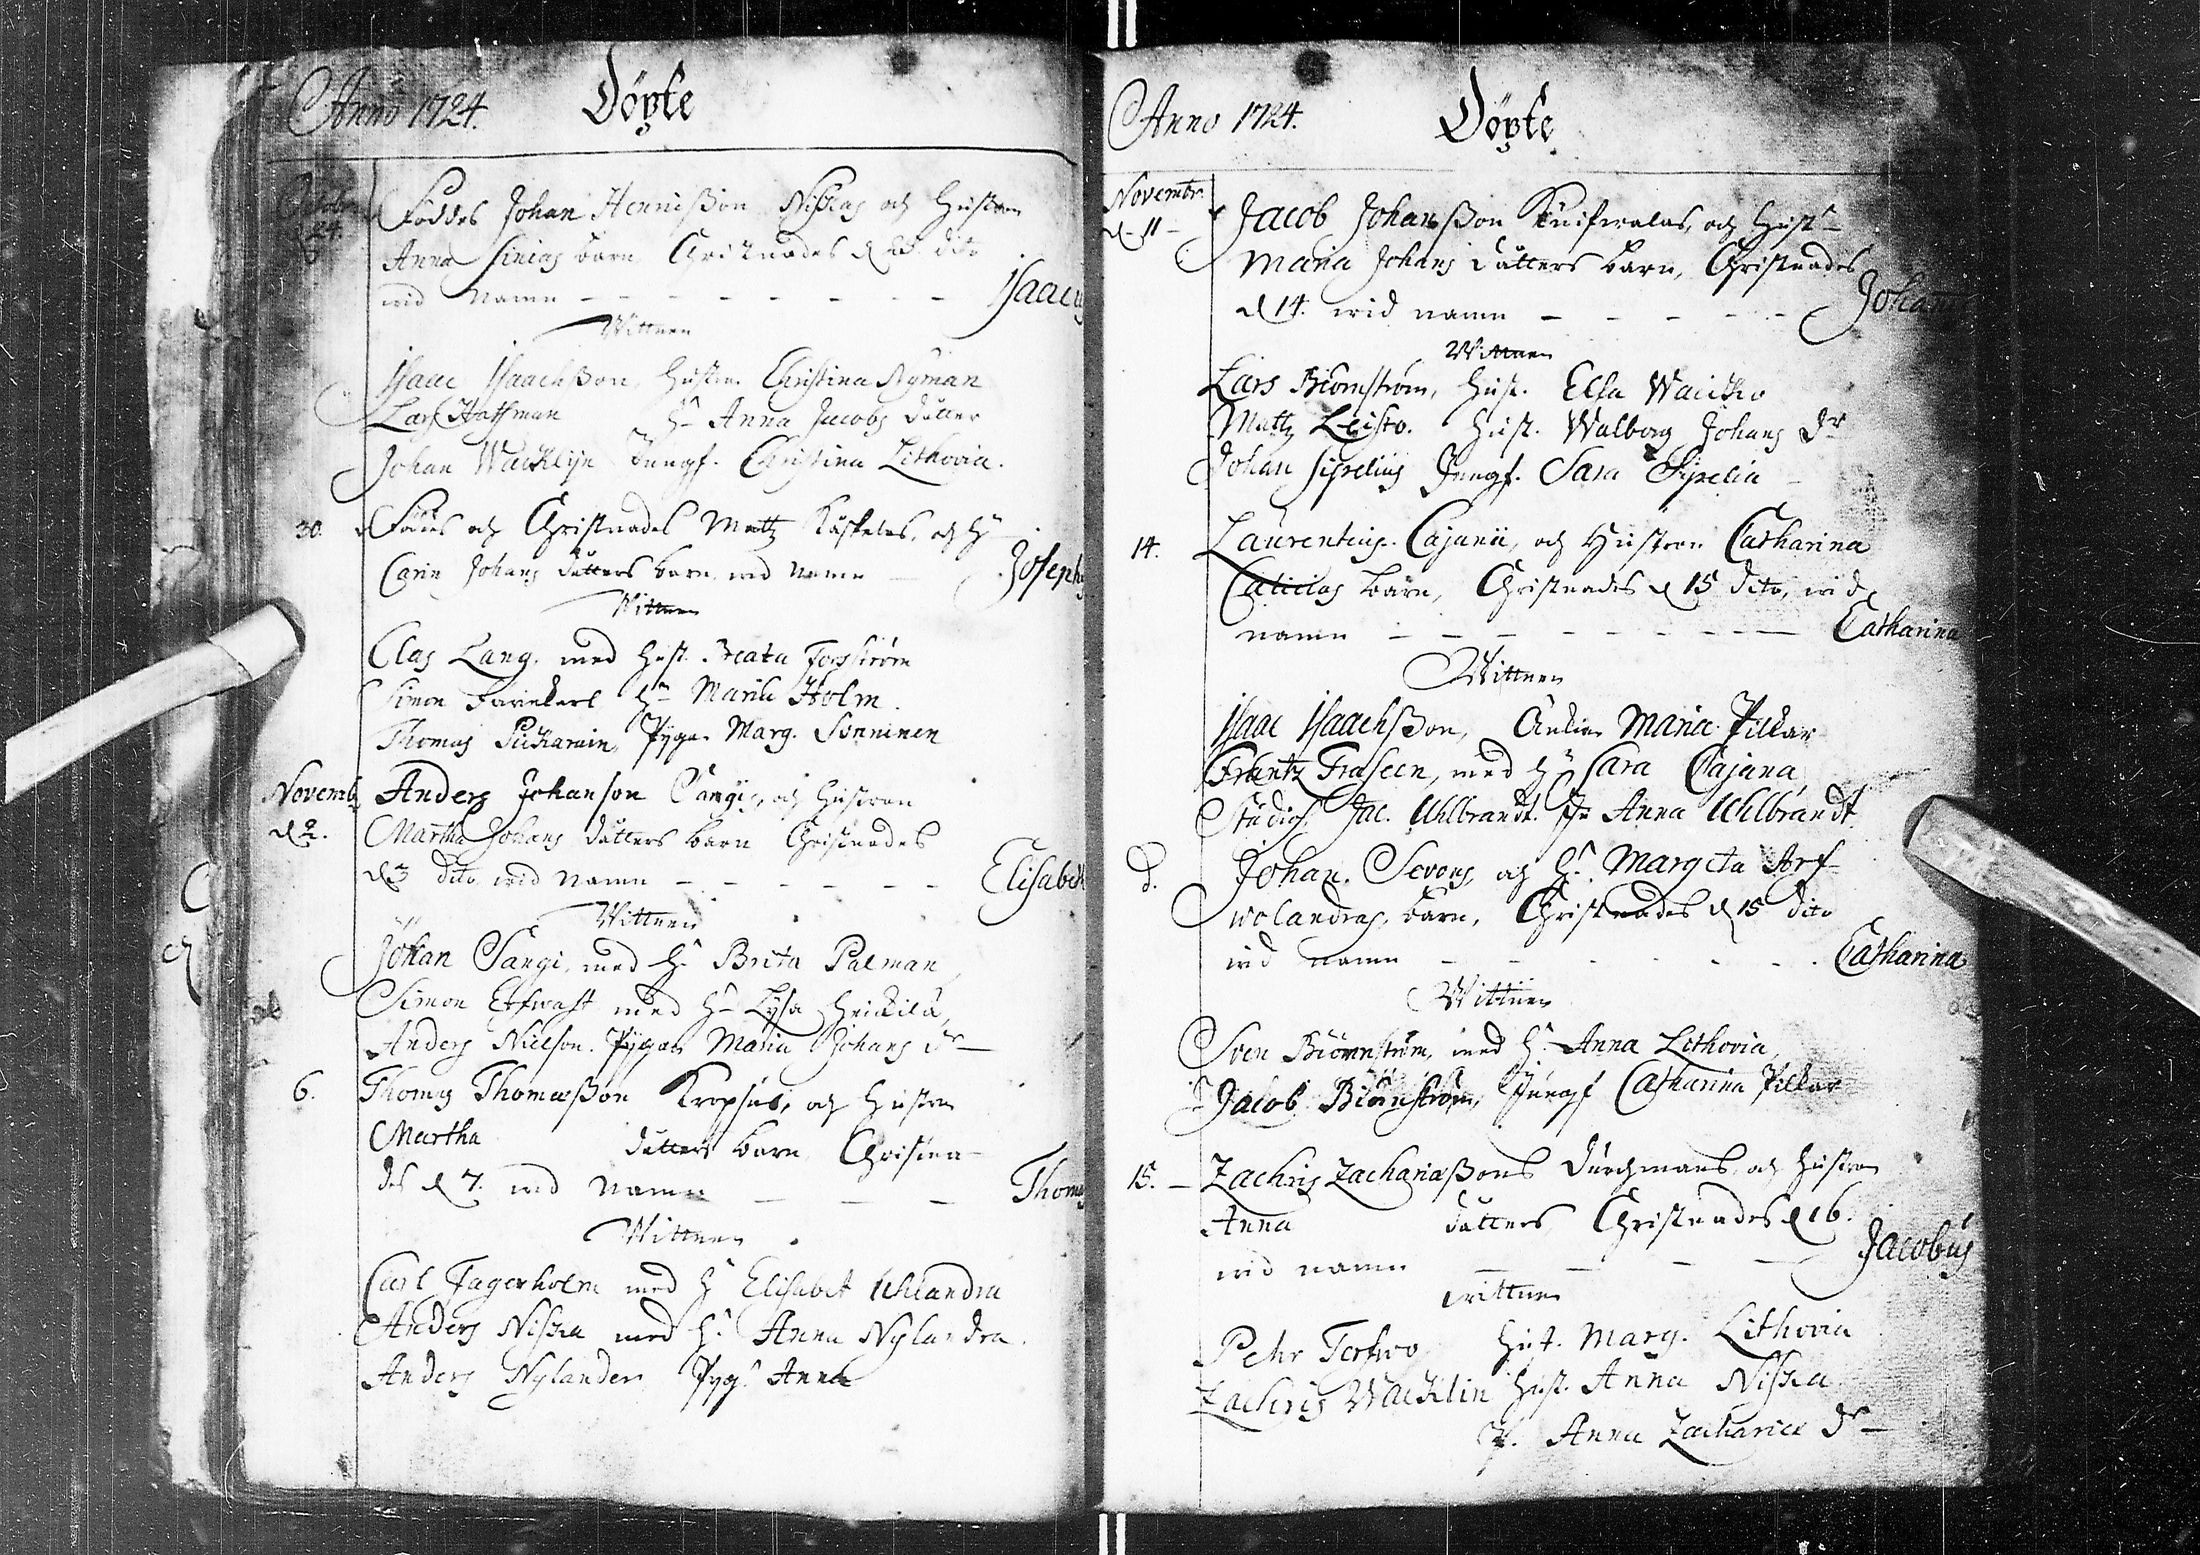 Anno 1724. Döpte
Octobr
d 24. Föddes Johan Hennisßon Niskas och Hustrun
Anna Sinias barn Christnades d 25 dito
wid namn - - - - - - - - Isaacus
Wittnen
Isaac Isaachsßon, Hustru Christina Nyman
Lars Haffman H. Anna Jacobs dotter
Johan Wacklijn Jungf. Christina Lithovia.
30. Föddes och Christnades Matz och H
Carin Johans dotters barn wid namn - Joseph
Wittnen
Clas Lang, med Hust. Beata Forsström
Simon H. Maria Holm.
Thomas Pigan Marg. Sonninen
Novemb.
d 2. Anders Johanson Sangis, och Hustrun
Martha Johans dotters barn Christnades
d 3 dito wid namn - - - - - - Elisabeth
Wittnen
Johan Sangi, med H. Brita Palman
Simon med H. Lysa Heickilä,
Anders Nielson. Pigan Maria Johans dr
6. Thomas Thomæßon Kropsus, och Hustrun
Martha dotters barn Christna-
des d 7. wid namn - - - Thomas
Wittnen
Carl Fagerholm med H. Elisabet Uhlandra
Anders Niska med H. Anna Nylandra.
Anders Nylander Pyg. Anna
Anno 1724. Döpte
Novembr.
d 11 - Jacob Johansßon Kuifwalas, och Hust.
Maria Johans dotters barn, Christnades
d 14. wid namn - - - - - Johannes
Wittnen
Lars Biörnström, Hust. Elsa
Matz Leisto. Hust. Walborg Johans dr
Johan Siprelius Jungf. Sara Siprelia
14. Laurentius Cajanii, och Hustrun Catharina
barn, Christnades d 15 dito, wid
namn - - - - - - - - - Catharina
Wittnen
Isaac Isaachsßon, Änkan Maria Pilkar
Frantz Fraseen, med H. Sara Cajana
Studios. Jac. Uhlbrandt. Jfr Anna Uhlbrandt.
d. Johan. Sevons, och H. Margeta Arf-
wolandras, barn, Christnades d 15 dito
wid namn - - - - - - - Catharina
Wittnen
Sven Biörnström, med H. Anna Lithovia,
Jacob Biörnström, Jungf Catharina Pilkar
15. - Zachris Zachariæßons Durchmans och Hustrun
Anna dotters, Christnades d 16.
wid namn - - - - - Jacobus
wittnen
Pehr Terfwo Hust. Marg. Lithovia
Zachris Wacklin Hust. Anna Niska
P. Anna Zachariæ dr